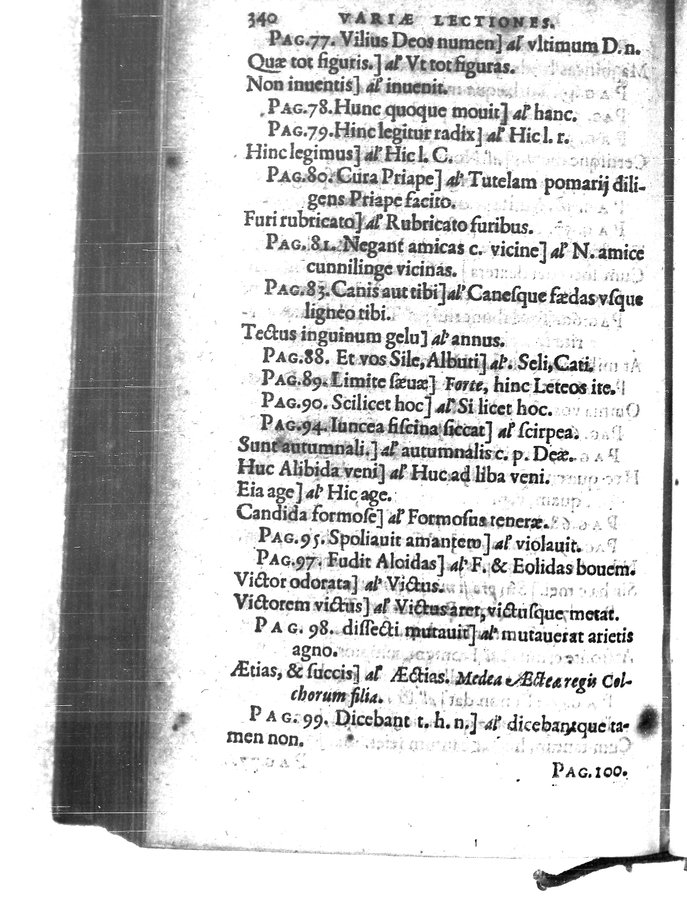 340 VARIÆ LECTIONES.
PAG.77. Vilius Deos numen] al' vltimum D. n.
Quæ tot figuris.] al' Vt tot figuras.
Non inuentis] al' inuenit.
PAG.78. Hunc quoque mouit] al' hanc.
PAG.79. Hinc legitur radix] al' Hic l. r.
Hinc legimus] al' Hic l. C.
PAG.80. Cura Priape] al' Tutelam pomarij dili-
gens Priape facito.
Furi rubricato] al' Rubricato furibus.
PAG. 81. Negant amicas c. vicine] al' N. amice
cunnilinge vicinas.
PAG.83. Canis aut tibi] al' Canesque fædas vsque
ligneo tibi.
Tectus inguinum gelu] al' annus.
PAG.88. Et vos Sile, Albuti] al'. Seli, Cati.
PAG.89. Limite sæuæ] Forte, hinc Leteos ite.
PAG.90. Scilicet hoc] al' Si licet hoc.
PAG.94. Iuncea fiscina siccat] al' scirpea.
Sunt autumnali.] al' autumnalis c. p. Deæ.
Huc Alibida veni] al' Huc ad liba veni.
Eia age] al' Hic age.
Candida formose] al' Formosus teneræ.
PAG.95. Spoliauit amantem] al' violauit.
PAG.97. Fudit Aloidas] al' F. & Eolidas bouem.
Victor odorata] al' Victus.
Victorem victus] al' Victus aret, victusque metat.
PAG. 98. dissecti mutauit] al' mutauerat arietis
agno.
Ætias, & succis] al' Æctias. Medea Æctea regis Col-
chorum filia.
PAG. 99. Dicebant t. h. n.] al' dicebantque ta-
men non.
PAG.100.